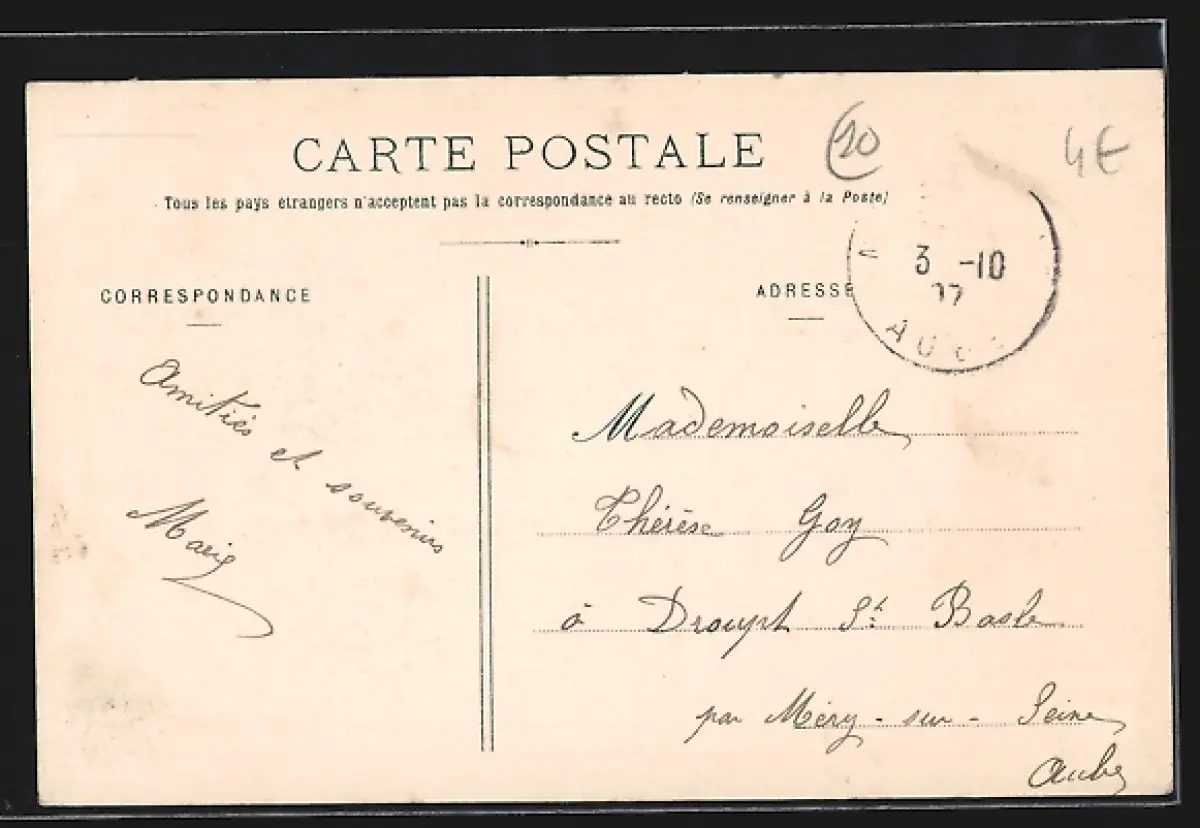 CARTE POSTALE
20
4€
Tous les pays étrangers n'acceptent pas la correspondance au recto (Se renseigner à la Poste)
3 -10
CORRESPONDANCE
ADRESSE
Amitiés et souvenirs
Marie
Mademoiselle
Thérèse Goy
à Droupt St. Basle
par Méry-sur-Seine
Aube